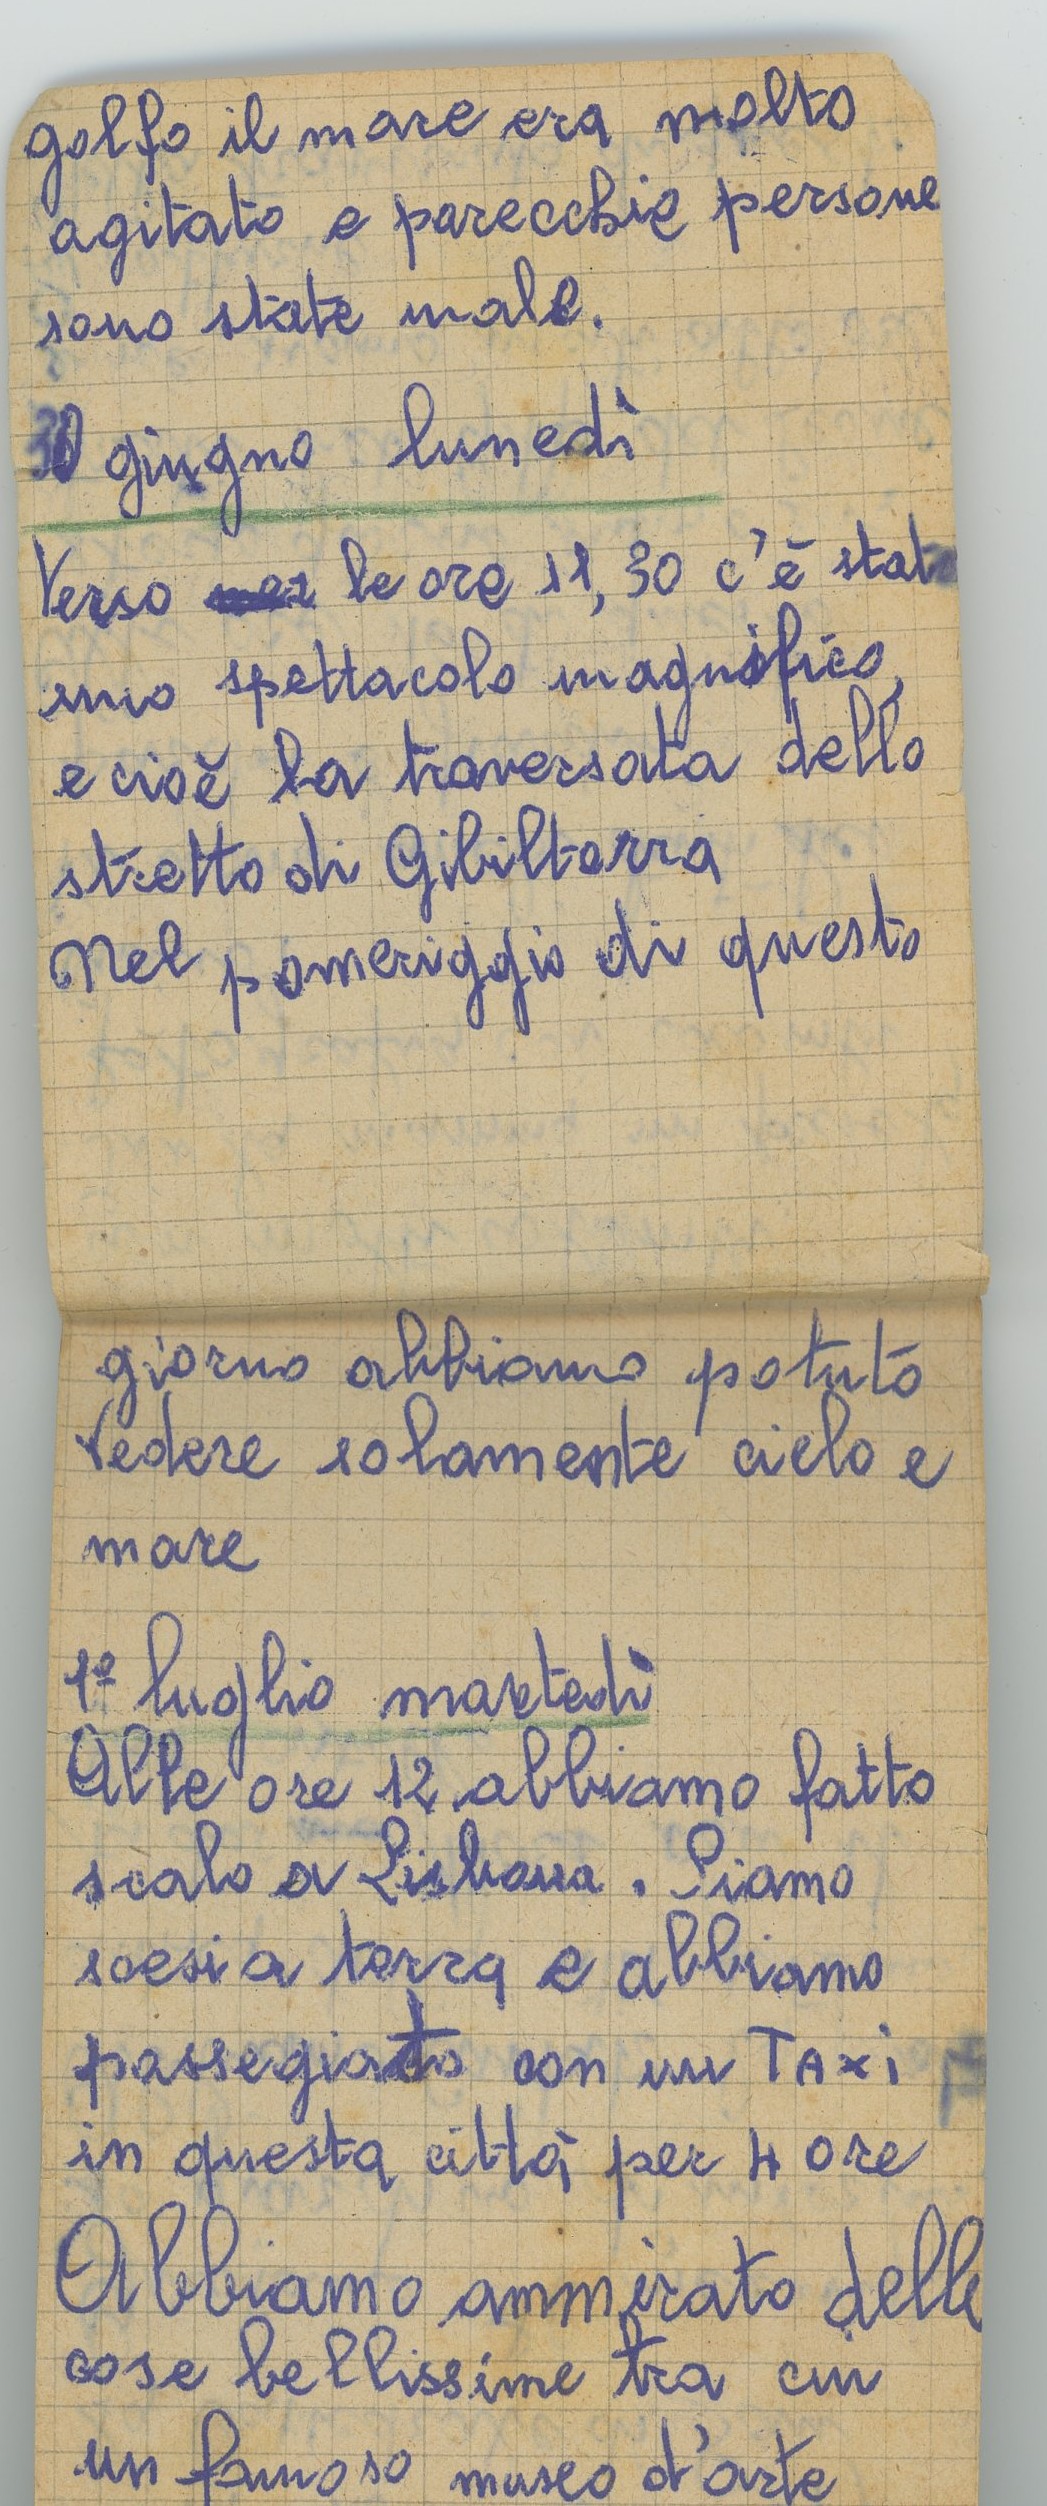 golfo il mare era molto
agitato e parecchie persone
sono state male.
30 giugno lunedì
Verso le ore 11,30 c'è stato
uno spettacolo magnifico,
e cioè la traversata dello
stretto di Gibilterra
Nel pomeriggio di questo
giorno abbiamo potuto
vedere solamente cielo e
mare
1º luglio martedì
Alle ore 12 abbiamo fatto
scalo a Lisbona. Siamo
scesi a terra e abbiamo
passegiato con un TAxi
in questa città per 4 ore
Abbiamo ammirato delle
cose bellissime tra cui
un famoso museo d'arte